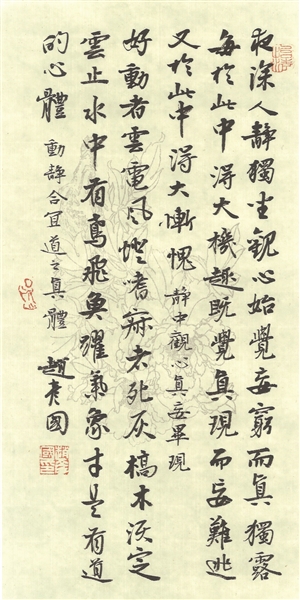 夜深人靜獨坐觀心始覺妄窮而真獨露
每於此中得大機趣既覺真現而妄難逃
又於此中得大慚愧 靜中觀心真妄畢現
好動者雲電風燈嗜寂者死灰槁木須定
雲止水中有鳶飛魚躍氣象才是有道
的心體 動靜合宜道之真體 趙彥國